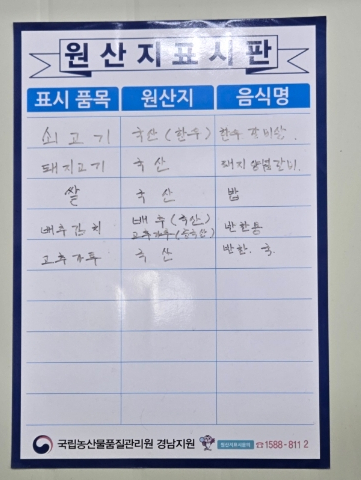 원산지표시판
표시 품목 원산지 음식명
쇠고기 국산 (한우) 한우 갈비살.
돼지고기 국산 돼지 양념갈비.
쌀 국산 밥
배추김치 배추 (국산) 반찬통
고추가루 (중국산)
고추가루 국산 반찬. 국.
국립농산물품질관리원 경남지원 원산지표시문의 ☎1588-8112